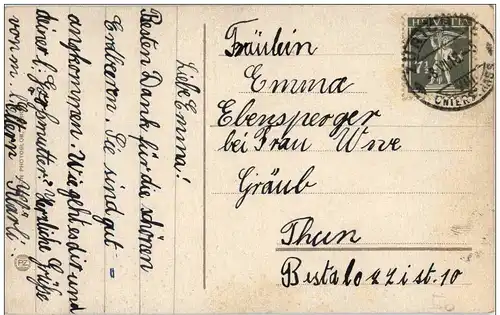 Liebe Emma!
Besten Dank für die schönen
Erdbeeren. Sie sind gut
angekommen. Wie geht es dir und
deiner l. Großmutter? Herzliche Grüße
von m. Eltern Marli.
Fräulein
Emma
Ebensperger
bei Frau Wwe
Gräub
Thun
Bestalozzist. 10
HELVETIA
7½